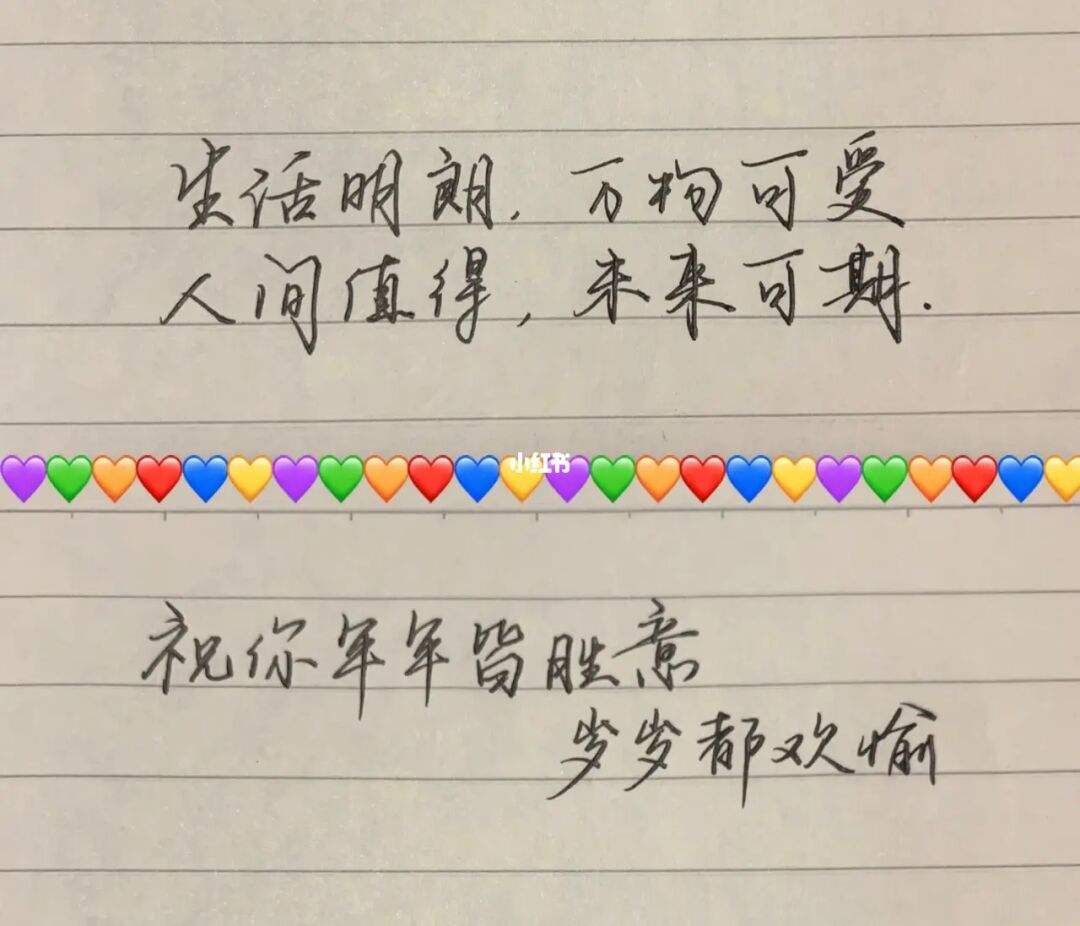 生活明朗.万物可受
人间值得,未来可期.
小红书
祝你年年皆胜意
岁岁都欢愉